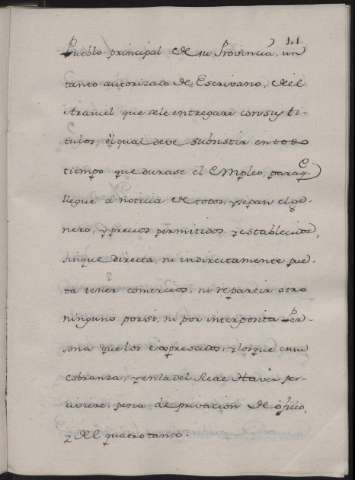 11
Pueblo principal de su Provincia, un
tanto autorizado de Escrivano, del
Arancel que sele entregare consu ti-
tulos, el qual deve subsistir entodo
tiempo que durase el Empleo, paraq
llegue à noticia de todos, y sepan el ge-
nero, y precios permitidos y establecidos,
sinque directa, ni indirectamente pue-
da tener comercio, ni repartir otro
ninguno porsi, ni por interposita Per-
sona quelos expresados, y loque en su
cobranza, y enla del Real Haver per-
civiere, pena de privacion de oficio,
y del quatrotanto.